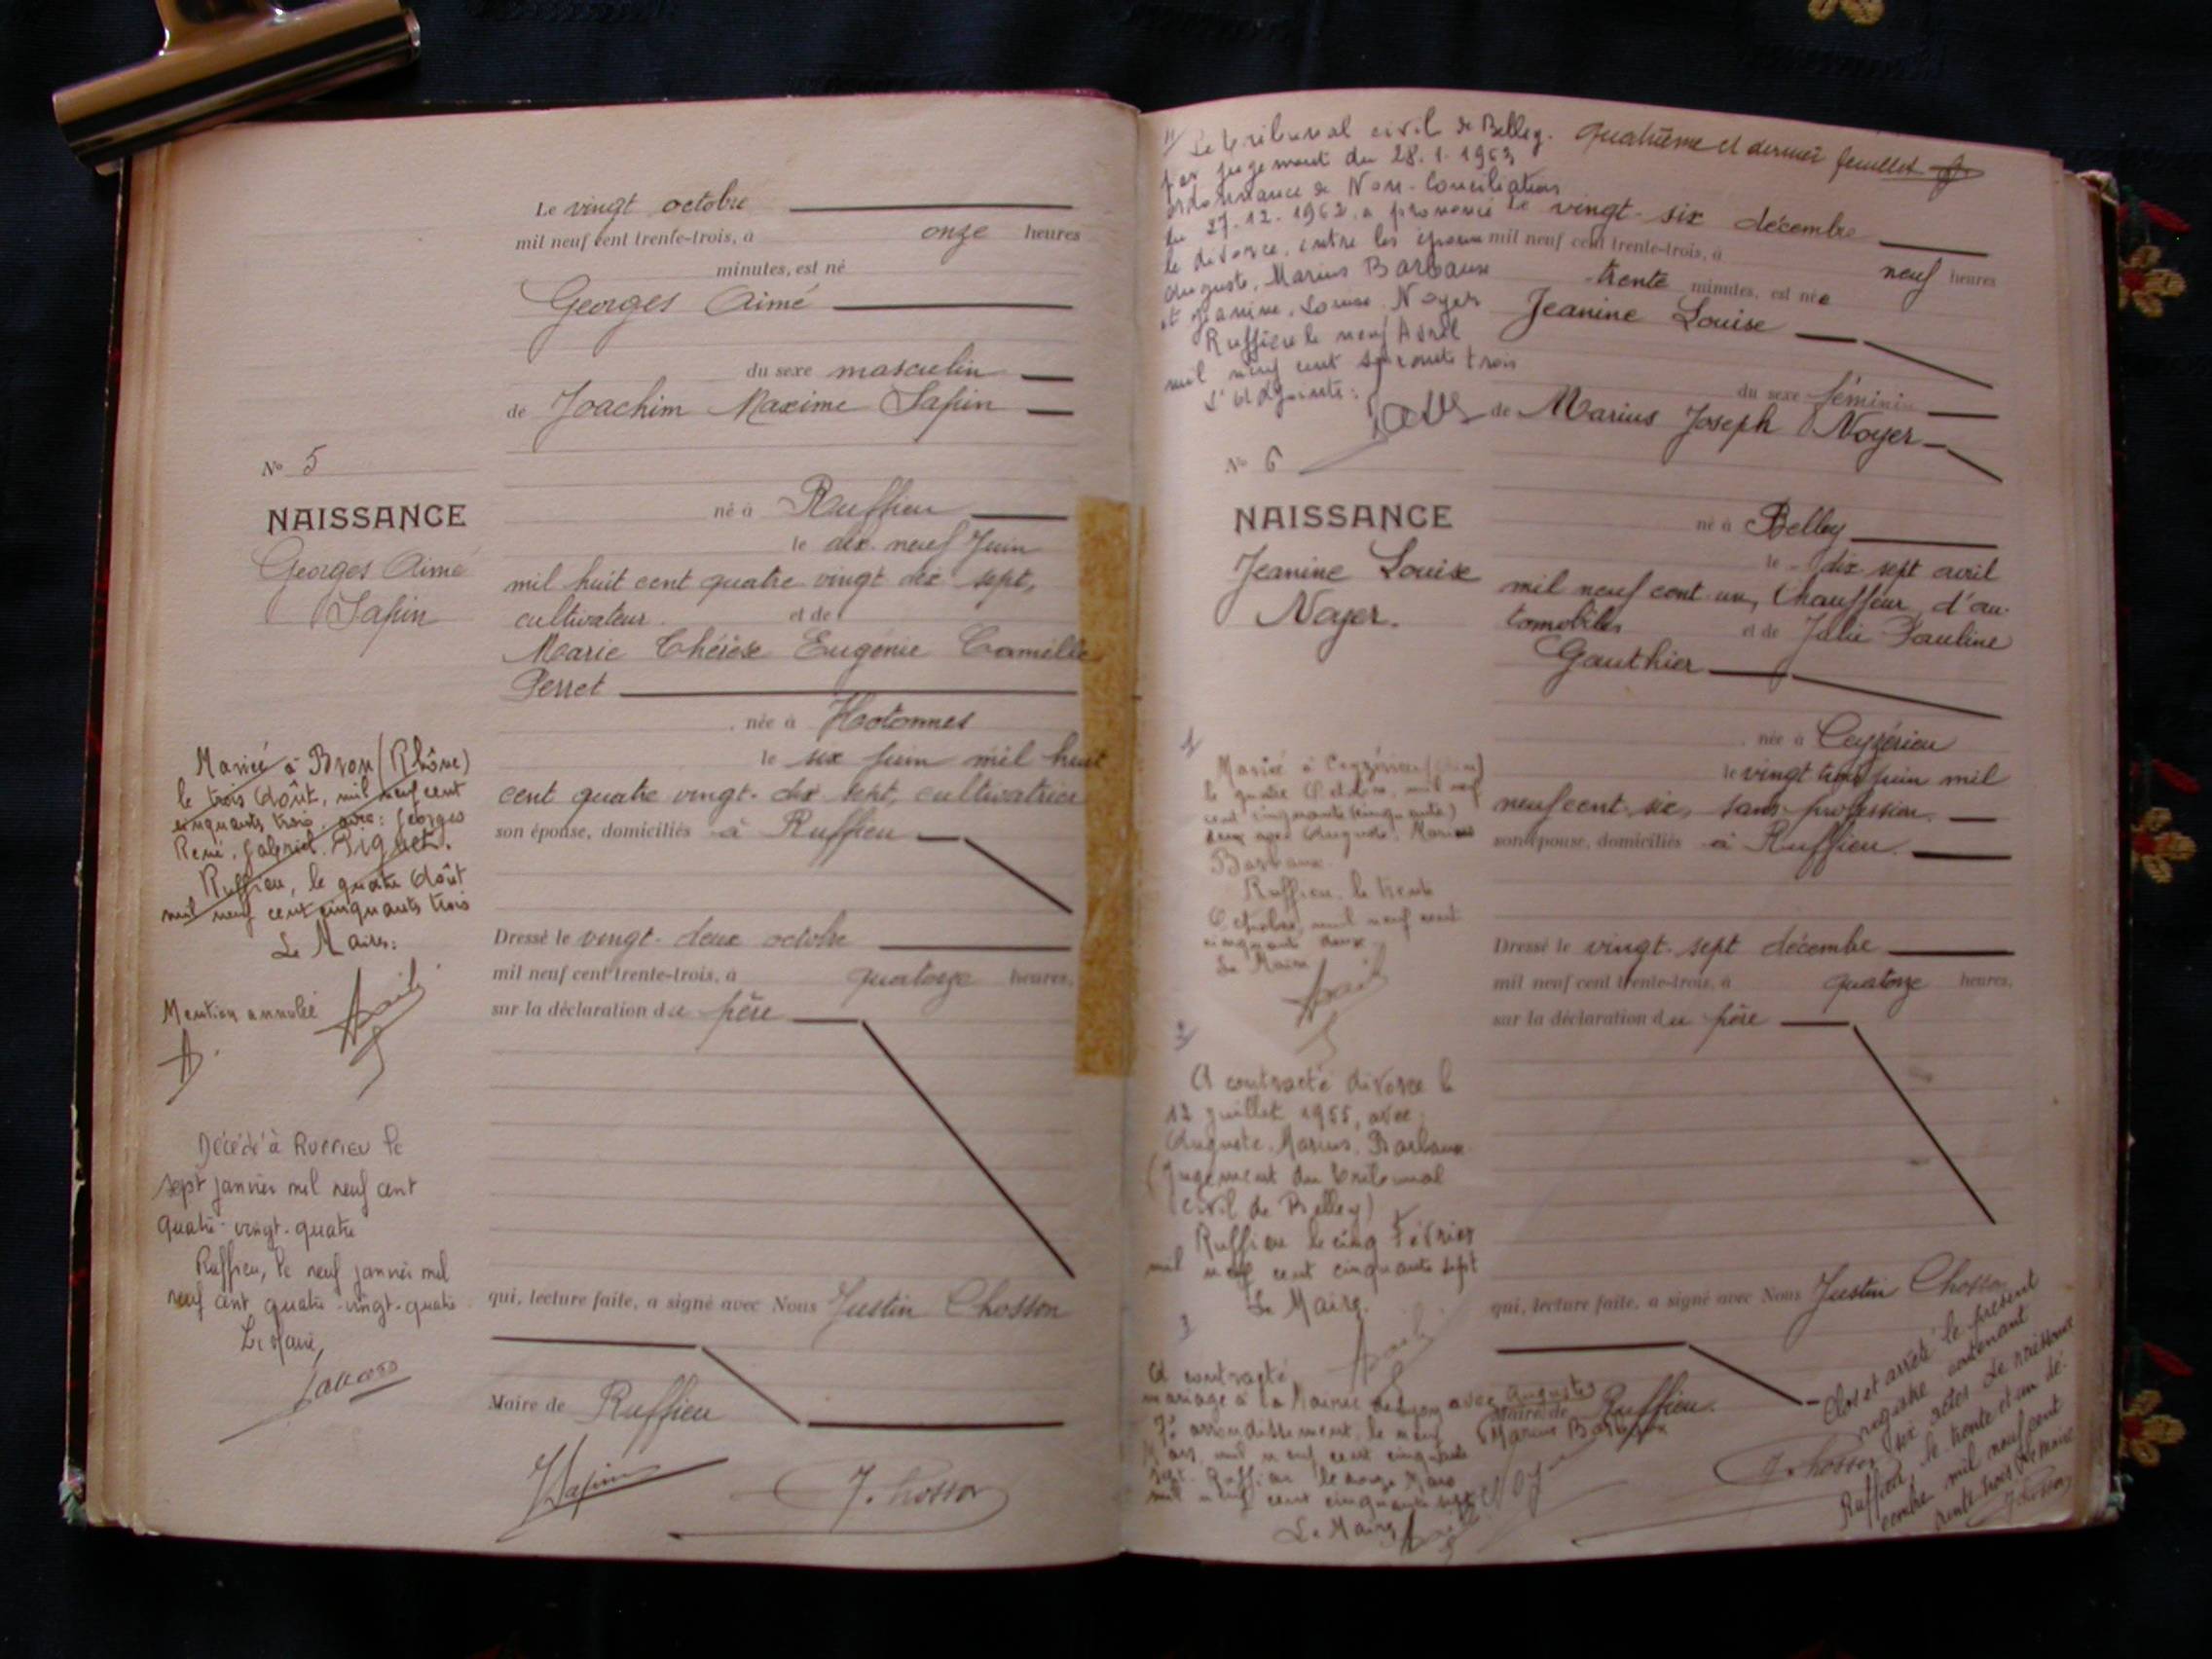 Le vingt octobre
mil neuf cent trente-trois, à onze heures
minutes, est né
Georges Aimé
du sexe masculin
de Joachim Maxime Sapin
N° 5
NAISSANCE
Georges Aimé
Sapin
né à Ruffieu
le dix-neuf Juin
mil huit cent quatre vingt dix sept,
cultivateur et de
Marie Thérèse Eugénie Camille
Perret
née à Hotonnes
le six juin mil huit
cent quatre vingt-dix sept, cultivatrice
son épouse, domiciliés à Ruffieu
Dressé le vingt-deux octobre
mil neuf cent trente-trois, à quatorze heures,
sur la déclaration du père
qui, lecture faite, a signé avec Nous Justin Chosson
Maire de Ruffieu
J Sapin
J. Chosson
Mariée à Bron (Rhône)
le trois Août, mil neuf cent
cinquante trois, avec: Georges
René, Gabriel Piguet.
Ruffieu, le quatre Août
mil neuf cent cinquante trois
Le Maire:
Mention annulée
Décédé à RUFFIEU le
sept janvier mil neuf cent
quatre-vingt-quatre
Ruffieu, le neuf janvier mil
neuf cent quatre-vingt-quatre
Le Maire,
4/ Le tribunal civil de Belley.
par jugement du 28.1.1963
ordonnance de Non-Conciliation
du 27.12.1962, a prononcé
le divorce, entre les époux
Auguste, Marius Barbaux
et Jeanine, Louise Noyer
Ruffieu le neuf Avril
mil neuf cent soixante trois
L'Adjointe:
Quatrième et dernier feuillet
Le vingt-six décembre
mil neuf cent trente-trois, à neuf heures
trente minutes, est née
Jeanine Louise
du sexe féminin
de Marius Joseph Noyer
N° 6
NAISSANCE
Jeanine Louise
Noyer.
né à Belley
le dix sept avril
mil neuf cent un, Chauffeur d'au-
tomobiles et de Julie Pauline
Gauthier
née à Ceyzérieu
le vingt trois juin mil
neuf cent six, sans profession.
son épouse, domiciliés à Ruffieu.
Dressé le vingt-sept décembre
mil neuf cent trente-trois, à quatorze heures,
sur la déclaration du père
qui, lecture faite, a signé avec Nous Justin Chosson
Maire de Ruffieu.
J. Chosson
1
Mariée à Ceyzérieu (Ain)
le quatre Octobre, mil neuf
cent cinquante (cinquante)
deux avec Auguste Marius
Barbaux.
Ruffieu, le trente
Octobre, mil neuf cent
cinquante deux
Le Maire
2
A contracté divorce le
12 juillet 1955, avec
Auguste, Marius, Barbaux.
(Jugement du tribunal
civil de Belley)
Ruffieu le cinq Février
mil neuf cent cinquante sept
Le Maire.
3
A contracté
mariage à la Mairie de Lyon avec Auguste
7e arrondissement, le neuf Marius Barbaux
Mars, mil neuf cent cinquante
sept. Ruffieu le onze Mars
mil neuf cent cinquante sept
Le Maire
Clos et arrêté le présent
registre contenant
six actes de naissance
Ruffieu le trente et un dé-
cembre mil neuf cent
trente-trois. Le Maire
J. Chosson